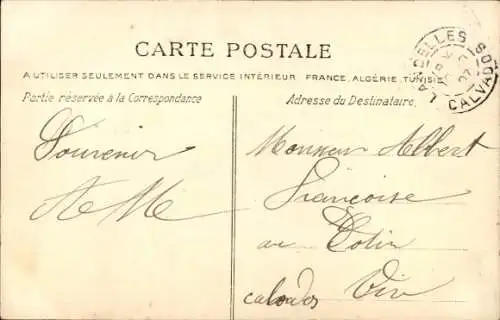 CARTE POSTALE
A UTILISER SEULEMENT DANS LE SERVICE INTÉRIEUR FRANCE, ALGÉRIE, TUNISIE
Partie réservée à la Correspondance
Adresse du Destinataire,
CALVADOS
Souvenir
Monsieur Albert
Françoise
au
calvados Vire